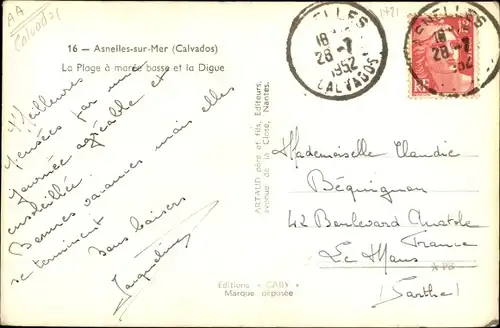 AA
Calvados
16 - Asnelles-sur-Mer (Calvados)
La Plage à marée basse et la Digue
Meilleures
Pensées par une
journée agréable et
ensoleillée.
Bonnes vacances mais elles
se terminent
Bons baisers
Jacqueline
ARTAUD père et fils, Editeurs,
avenue de la Close, Nantes.
Editions "GABY"
Marque déposée
ELLES
18
28-7
1952
CALVADOS
ASNELLES
18
28-7
1952
RF
Mademoiselle Claudie
Béquignon
42 Boulevard Anatole
France
Le Mans
(Sarthe)